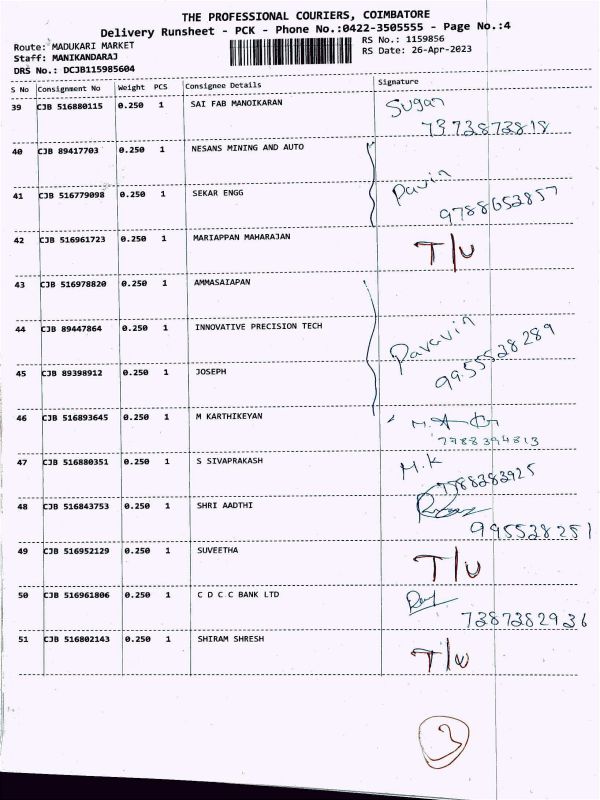 THE PROFESSIONAL COURIERS, COIMBATORE
Delivery Runsheet - PCK - Phone No.:0422-3505555 - Page No.:4
Route: MADUKARI MARKET RS No.: 1159856
Staff: MANIKANDARAJ RS Date: 26-Apr-2023
DRS No.: DCJB115985604
S No Consignment No Weight PCS Consignee Details Signature
39 CJB 516880115 0.250 1 SAI FAB MANOIKARAN Sugan
7373873818
40 CJB 89417703 0.250 1 NESANS MINING AND AUTO
41 CJB 516779098 0.250 1 SEKAR ENGG Pavin
9788652857
42 CJB 516961723 0.250 1 MARIAPPAN MAHARAJAN T/U
43 CJB 516978820 0.250 1 AMMASAIAPAN
44 CJB 89447864 0.250 1 INNOVATIVE PRECISION TECH Pavavin
9955528289
45 CJB 89398912 0.250 1 JOSEPH
46 CJB 516893645 0.250 1 M KARTHIKEYAN
7788394813
47 CJB 516880351 0.250 1 S SIVAPRAKASH M.K
7988383925
48 CJB 516843753 0.250 1 SHRI AADTHI
995528251
49 CJB 516952129 0.250 1 SUVEETHA T/U
50 CJB 516961806 0.250 1 C D C C BANK LTD
7387382936
51 CJB 516802143 0.250 1 SHIRAM SHRESH T/U
3